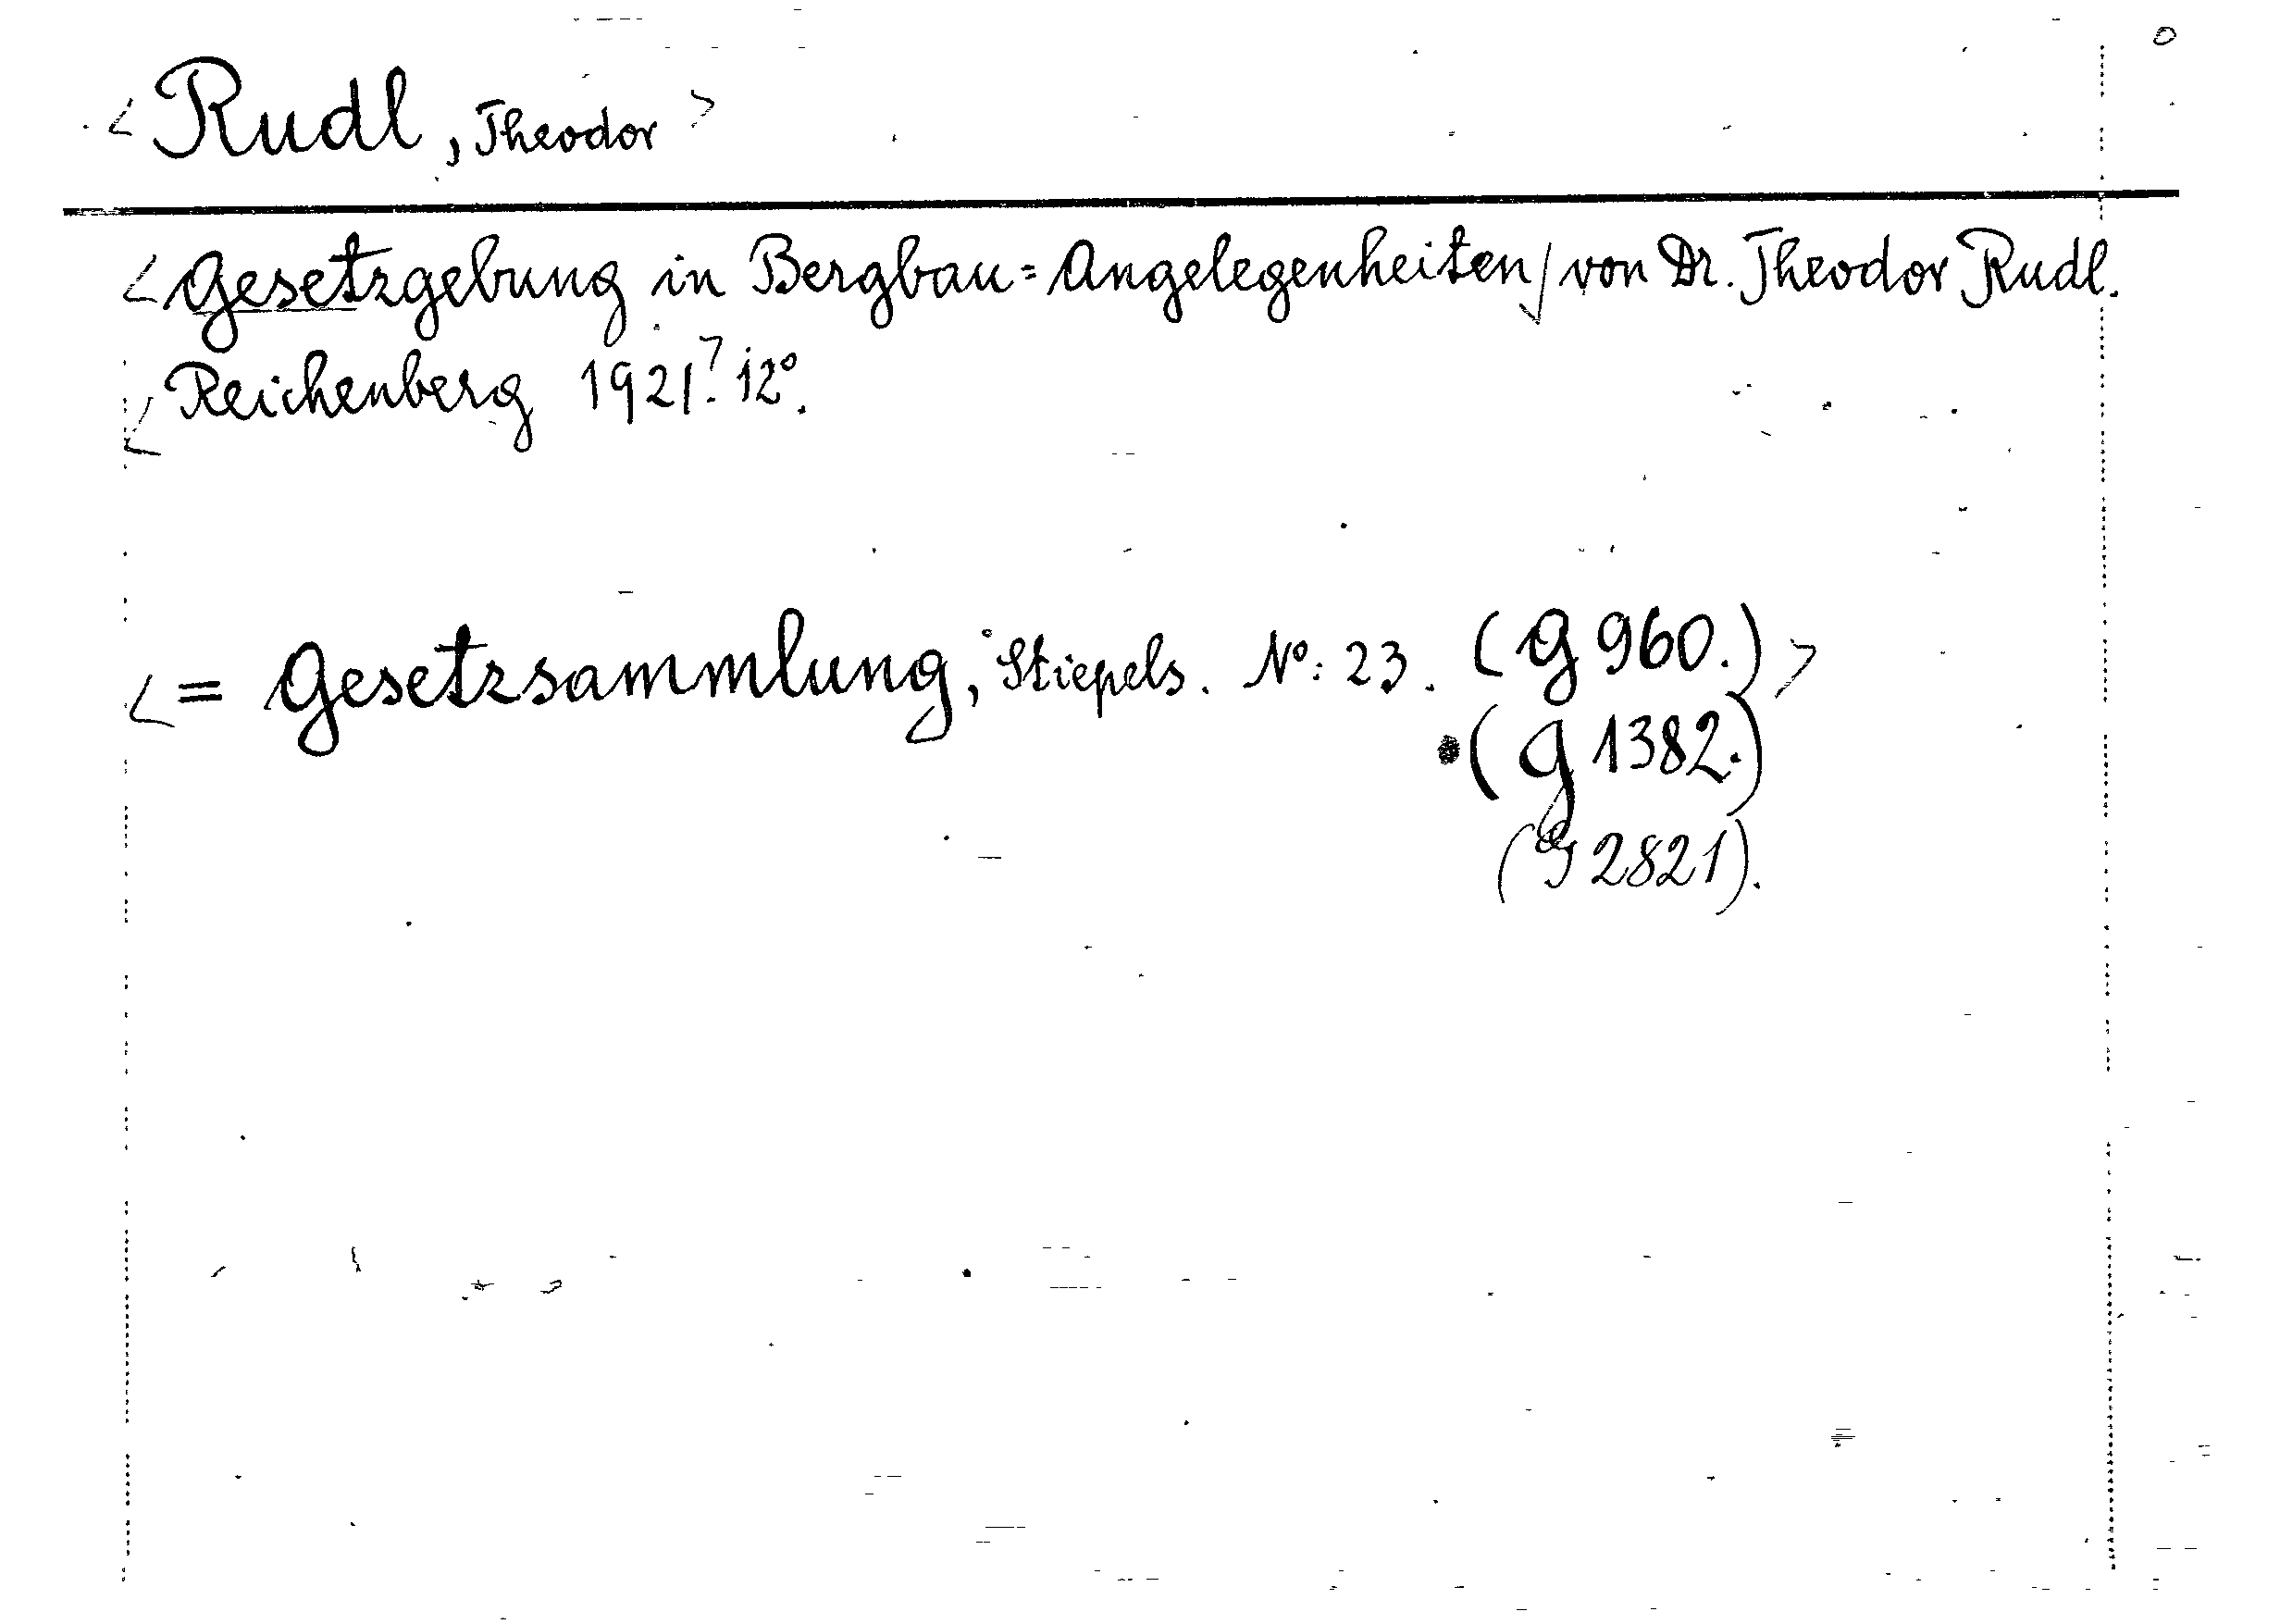 < Rudl, Theodor >
< Gesetzgebung in Bergbau=Angelegenheiten/ von Dr. Theodor Rudl.
< Reichenberg 1921? 12°.
< = Gesetzsammlung, Stiepels. N°: 23. (G 960.) >
(G 1382.)
(G 2821).